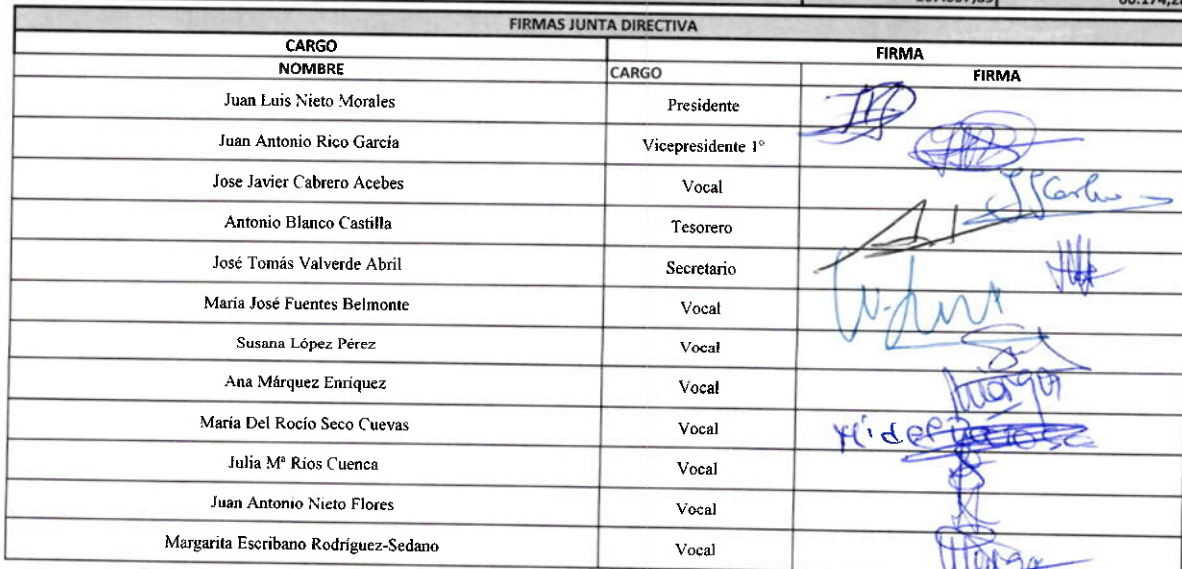 FIRMAS JUNTA DIRECTIVA
CARGO FIRMA
NOMBRE CARGO FIRMA
Juan Luis Nieto Morales Presidente
Juan Antonio Rico García Vicepresidente 1º
Jose Javier Cabrero Acebes Vocal
Antonio Blanco Castilla Tesorero
José Tomás Valverde Abril Secretario
María José Fuentes Belmonte Vocal
Susana López Pérez Vocal
Ana Márquez Enríquez Vocal
María Del Rocío Seco Cuevas Vocal
Julia Mª Ríos Cuenca Vocal
Juan Antonio Nieto Flores Vocal
Margarita Escribano Rodríguez-Sedano Vocal